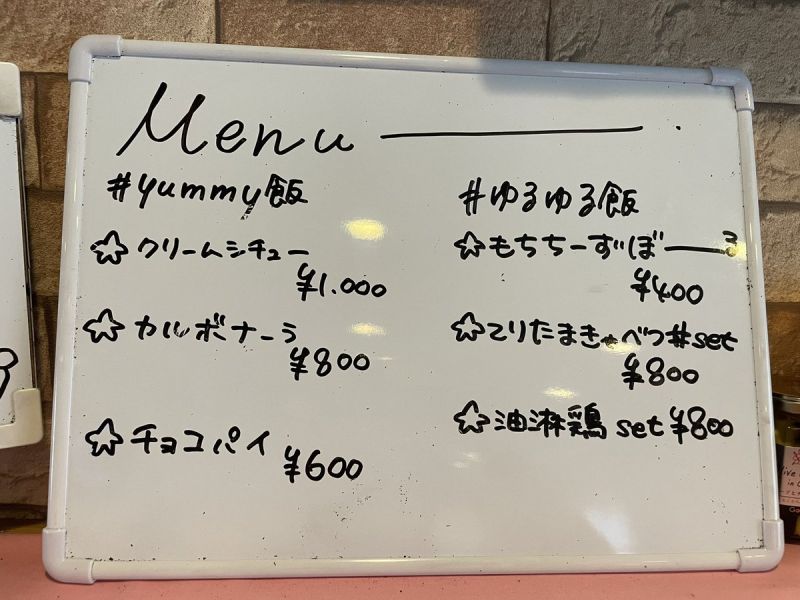 Menu
#yummy飯
☆クリームシチュー
¥1.000
☆カルボナーラ
¥800
☆チョコパイ
¥600
#ゆるゆる飯
☆もちちーずぼーる
¥400
☆てりたまきゃべつ丼set
¥800
☆油淋鶏 set ¥800